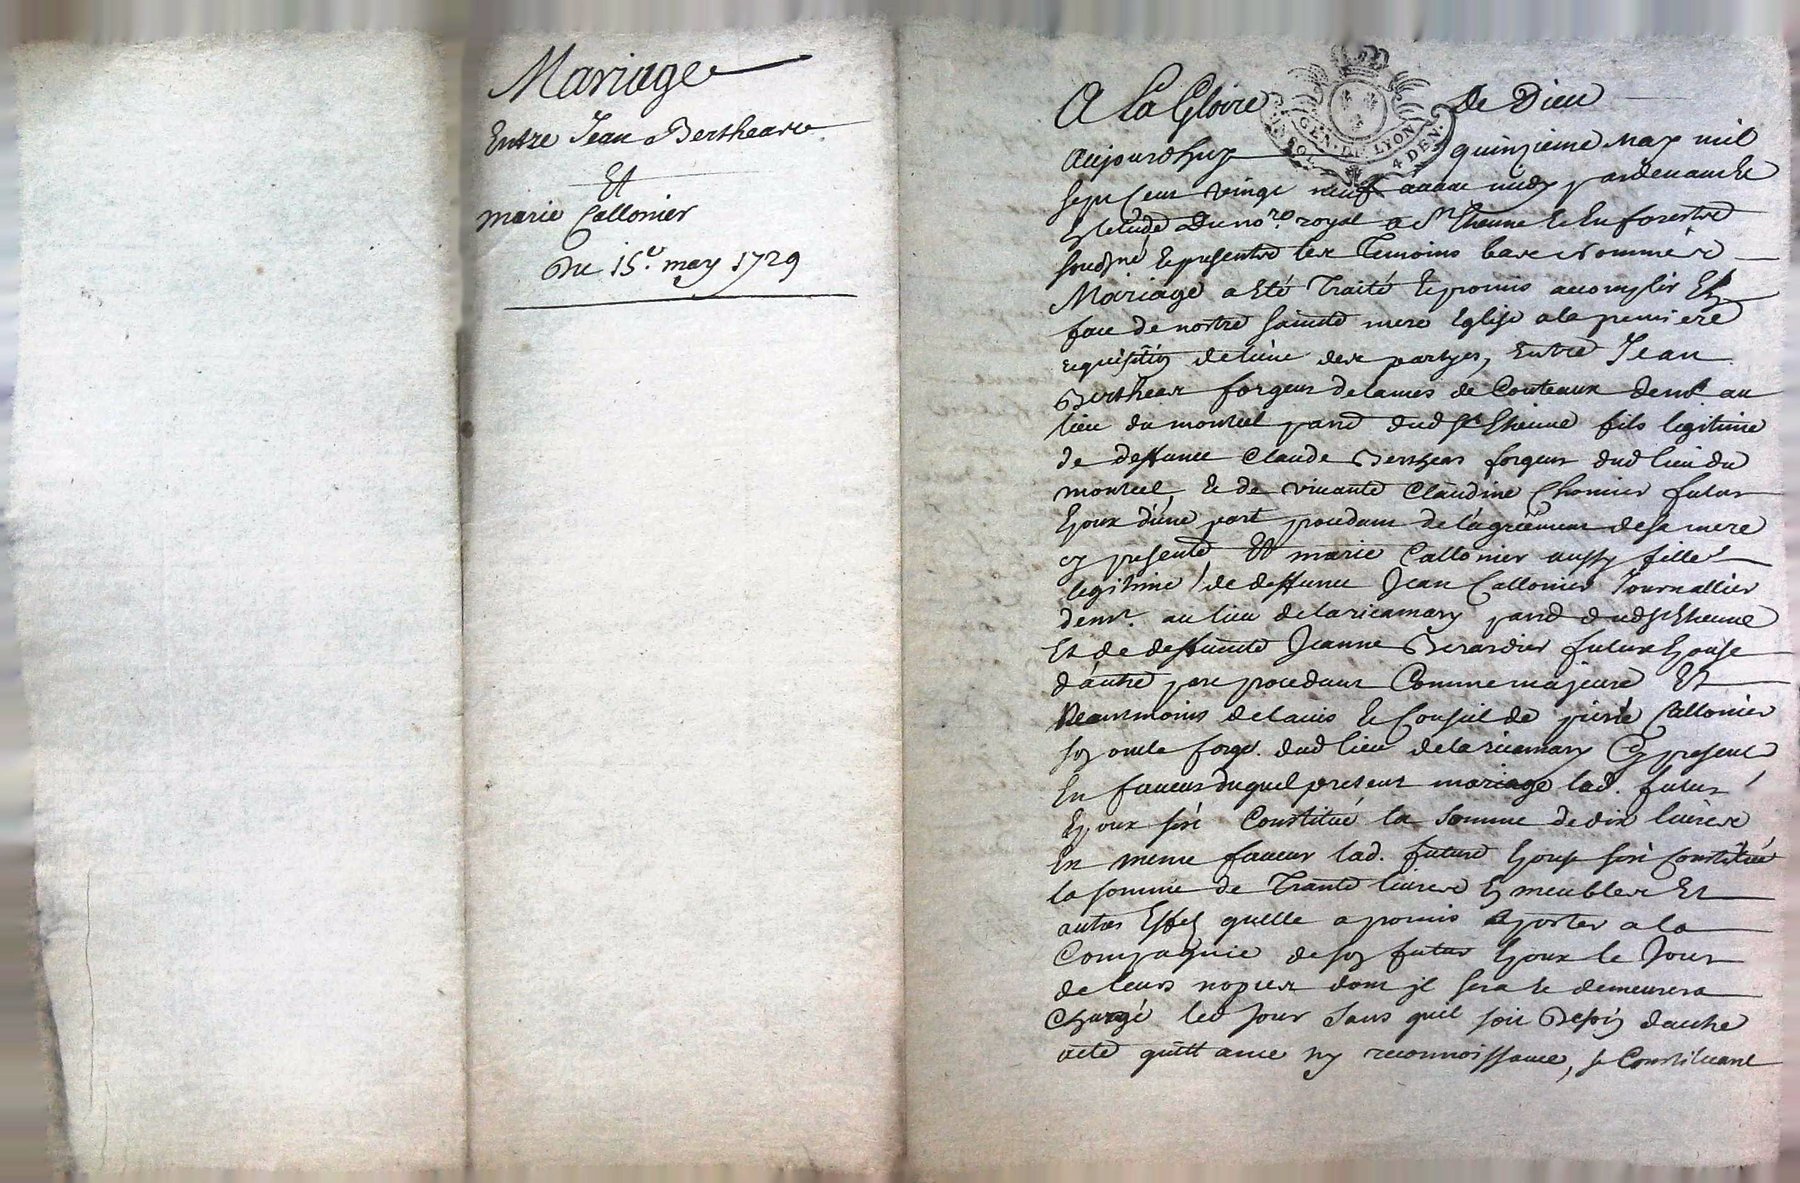 Mariage
Entre Jean Berthear
Et
marie Callonier
Du 15e. may 1729
A La Gloire de Dieu
GEN. DE LYON
4 DEN.
Aujourdhuy quinzieme may mil
sept cent vingt neuf avant midy pardevant le
no.re royal a St Etienne en forestz
soubzné et presents les temoins bas nommés
Mariage a été traité et promis accomplir En
face de nostre sainte mere Eglise a la premiere
requisition de lune des partyes, Entre Jean
Berthear forgeur de lames de Couteaux demt au
lieu du monteil parse dud St Etienne fils legitime
de deffunct Claude Berthear forgeur dud lieu du
monteil, et de vivante Claudine Chomier futur
Epoux d'une part procedant de l'agréement de sa mere
cy presente, Et marie Callonier aussy fille
legitime de deffunct Jean Callonier Journallier
demt. au lieu de laricamary parse dud St Etienne
Et de deffuncte Jeanne Berardier future Epouse
d'autre part procedant Comme majeure Et
Neantmoins de lavis et Conseil de pierre Callonier
son oncle forgr. dud lieu de laricamary Cy present
En faveur duquel present mariage led. futur
Epoux sest Constitué la somme de dix livres
En meme faveur lad. future Epouse sest constituée
la somme de Trante livres En meubles Et
autres Effets quelle a promis aporter a la
Compagnie de son futur Epoux le Jour
de leurs nopces dont jl sera et demeurera
Chargé led Jour sans quil soit Besoin dautre
acte quittance ny reconnoissance, se Constituant